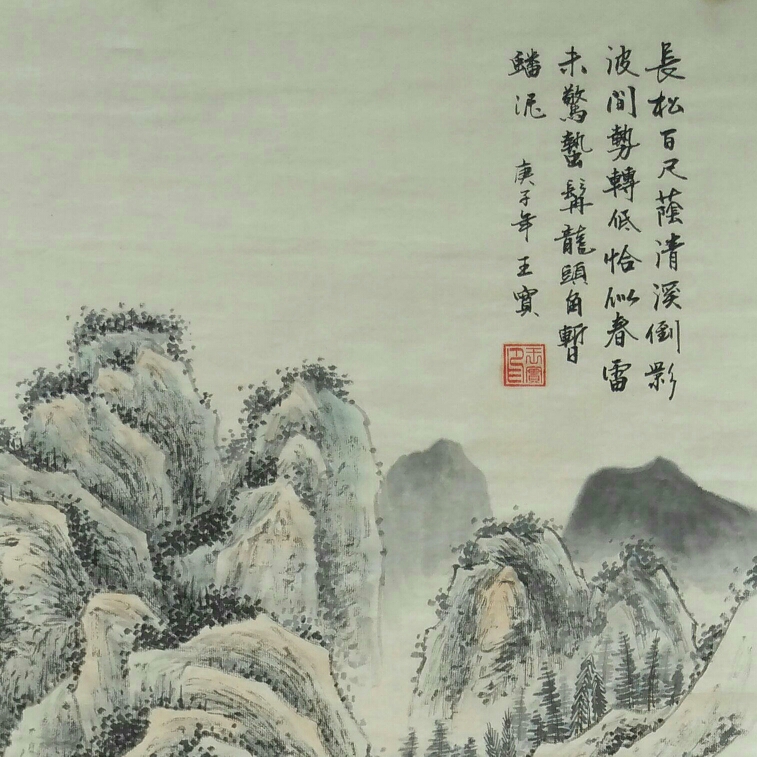 長松百尺蔭清溪倒影
波間勢轉低恰似春雷
未驚蟄髯龍頭角暫
蟠泥
庚子年王寶